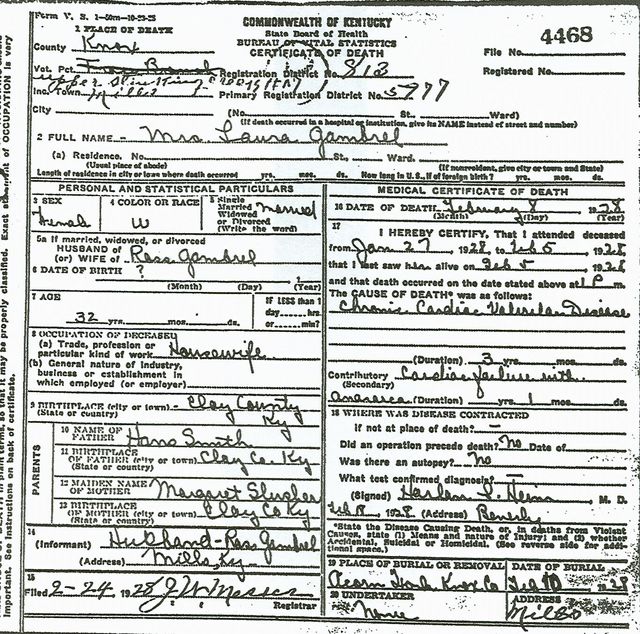 Form V. S. 1-50m-10-23-25
COMMONWEALTH OF KENTUCKY
State Board of Health
BUREAU OF VITAL STATISTICS
CERTIFICATE OF DEATH
4468
File No.
Registered No.
1 PLACE OF DEATH
County Knox
Vot. Pct.
Registration District No. 813
Inc. Town Mills
Primary Registration District No. 5977
City (No. St. Ward)
(If death occurred in a hospital or institution, give its NAME instead of street and number)
2 FULL NAME - Mrs. Laura Gambrel
(a) Residence. No. St., Ward.
(Usual place of abode) (If nonresident, give city or town and State)
Length of residence in city or town where death occurred yrs. mos. ds. How long in U. S., if of foreign birth? yrs. mos. ds.
PERSONAL AND STATISTICAL PARTICULARS
3 SEX
Female
4 COLOR OR RACE
W
5 Single
Married
Widowed
or Divorced
(Write the word)
Married
5a If married, widowed, or divorced
HUSBAND of
(or) WIFE of Ross Gambrel
6 DATE OF BIRTH ? 1
(Month) (Day) (Year)
7 AGE
32 yrs. mos. ds.
IF LESS than 1
day hrs.
or min?
8 OCCUPATION OF DECEASED
(a) Trade, profession or
particular kind of work Housewife
(b) General nature of industry,
business or establishment in
which employed (or employer)
9 BIRTHPLACE (city or town) - Clay County
(State or country) Ky
PARENTS
10 NAME OF
FATHER Hans Smith
11 BIRTHPLACE
OF FATHER (city or town) Clay Co Ky
(State or country)
12 MAIDEN NAME
OF MOTHER Margaret Slusher
13 BIRTHPLACE
OF MOTHER (city or town) Clay Co Ky
(State or country)
14
(Informant) Husband - Ross Gambrel
(Address) Mills, Ky.
15
Filed 2-24 1928 J W Moses
Registrar
MEDICAL CERTIFICATE OF DEATH
16 DATE OF DEATH February 8 1928
(Month) (Day) (Year)
17
I HEREBY CERTIFY, That I attended deceased
from Jan 27 1928, to Feb 5 1928,
that I last saw h alive on Feb 5 1928
and that death occurred on the date stated above at 1 P m.
The CAUSE OF DEATH* was as follows:
Chronic Cardiac Valvular Disease
(Duration) 3 yrs. mos. ds.
Contributory Cardiac failure with
(Secondary)
Anasarca (Duration) yrs. 1 mos. ds.
18 WHERE WAS DISEASE CONTRACTED
If not at place of death? —
Did an operation precede death? No Date of
Was there an autopsy? No
What test confirmed diagnosis? —
(Signed) Harlan S. Heim M. D.
Feb 8, 1928 (Address)
*State the Disease Causing Death, or, in deaths from Violent
Causes, state (1) Means and nature of Injury; and (2) whether
Accidental, Suicidal or Homicidal. (See reverse side for addi-
tional space.)
19 PLACE OF BURIAL OR REMOVAL DATE OF BURIAL
Acorn Fork Knox Co Feb 10 1928
20 UNDERTAKER ADDRESS
None Mills